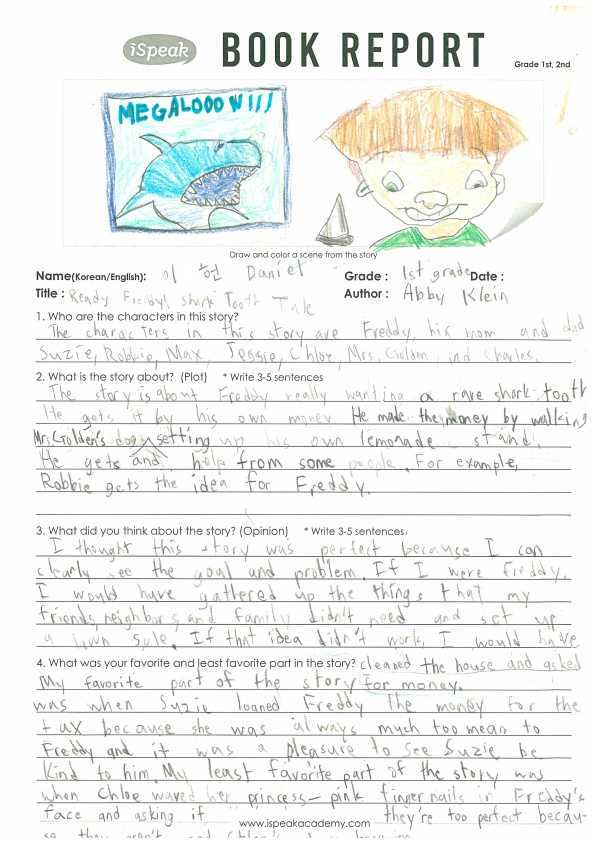 iSpeak BOOK REPORT
Grade 1st, 2nd
MEGALOOOWN!!!
Draw and color a scene from the story
Name(Korean/English): 이 헌 Daniel Grade : 1st grade Date :
Title : Ready Freddy! shark Tooth Tale Author : Abby Klein
1. Who are the characters in this story?
The characters in this story are Freddy, his mom and dad
Suzie, Robbie, Max, Jessie, Chloe, Mrs. Golden, and Charles.
2. What is the story about? (Plot) * Write 3-5 sentences
The story is about Freddy really wanting a rare shark tooth
He gets it by his own money. He make the money by walking
Mrs. Golden's dogs and setting up his own lemonade stand.
He gets help from some people. For example,
Robbie gets the idea for Freddy.
3. What did you think about the story? (Opinion) * Write 3-5 sentences.
I thought this story was perfect because I can
clearly see the goal and problem. If I were Freddy,
I would have gathered up the things that my
friends, neighbors and family didn't need and set up
a lawn sale. If that idea didn't work, I would have
4. What was your favorite and least favorite part in the story? cleaned the house and asked
for money.
My favorite part of the story
was when Suzie loaned Freddy the money for the
tax because she was always much too mean to
Freddy and it was a pleasure to see Suzie be
kind to him. My least favorite part of the story was
when Chloe waved her princess-pink fingernails in Freddy's
face and asking if they're too perfect becau-
www.ispeakacademy.com